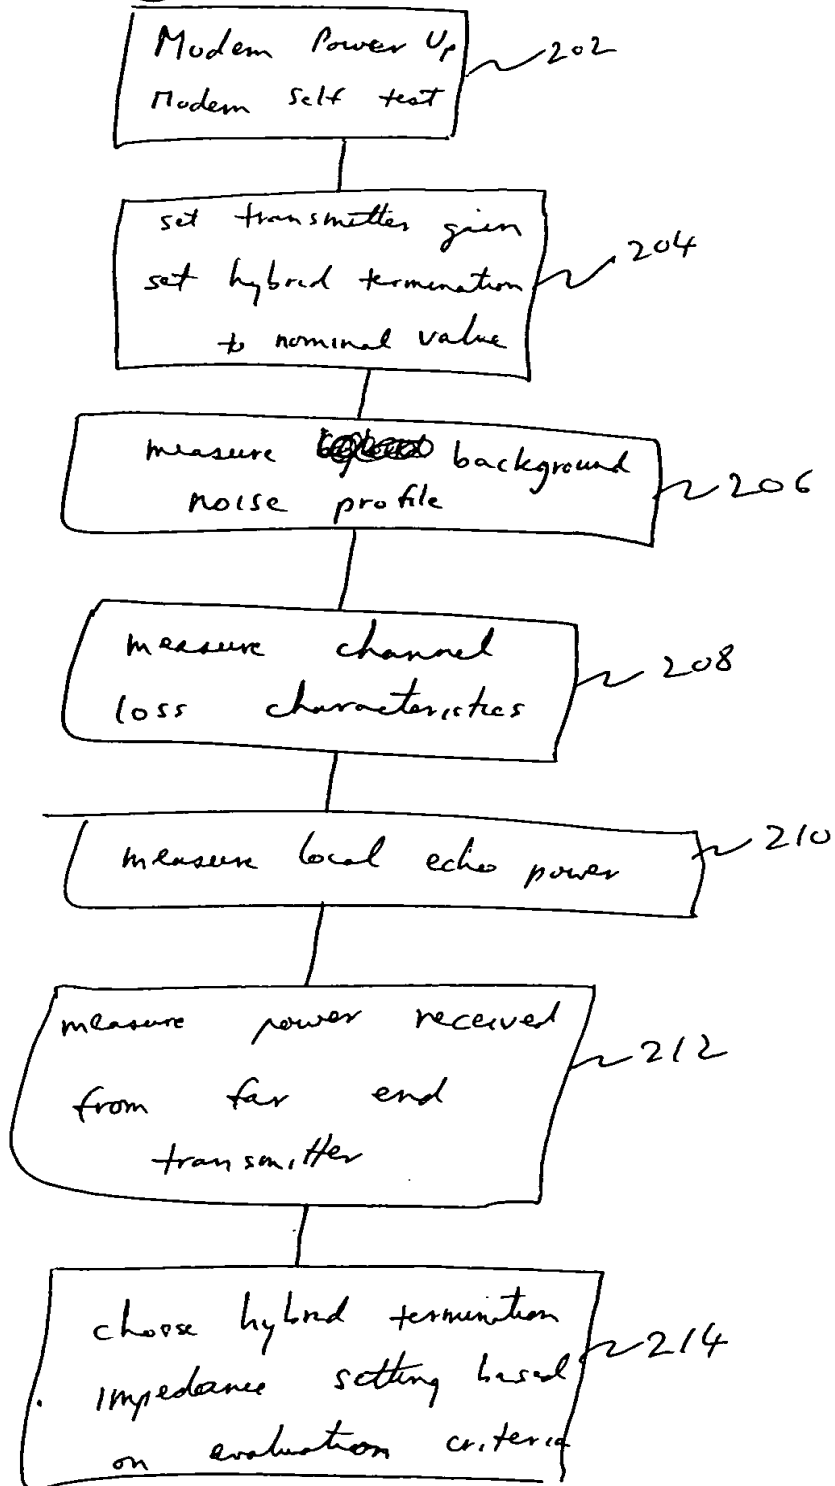 Modem Power Up
202
Modem self test
set transmitter gain
set hybrid termination
204
to nominal value
measure background
noise profile
206
measure channel
loss characteristics
208
measure local echo power
210
measure power received
from far end
212
transmitter
choose hybrid termination
impedance setting based
214
on evaluation criteria